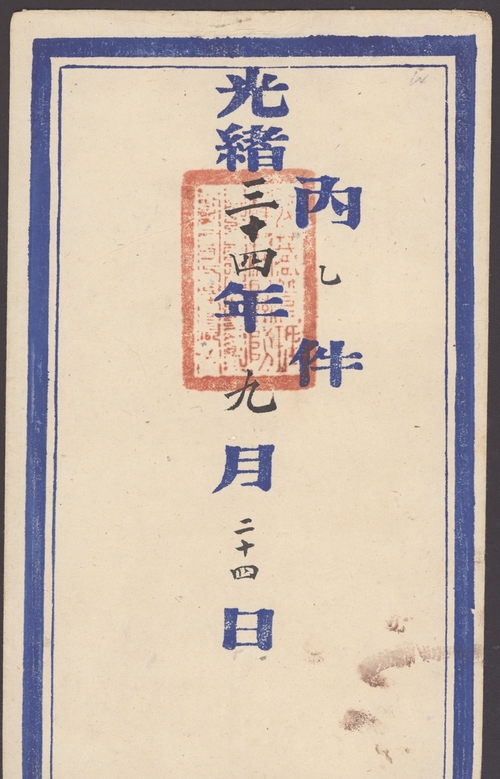 內乙件
光緒三十四年九月二十四日